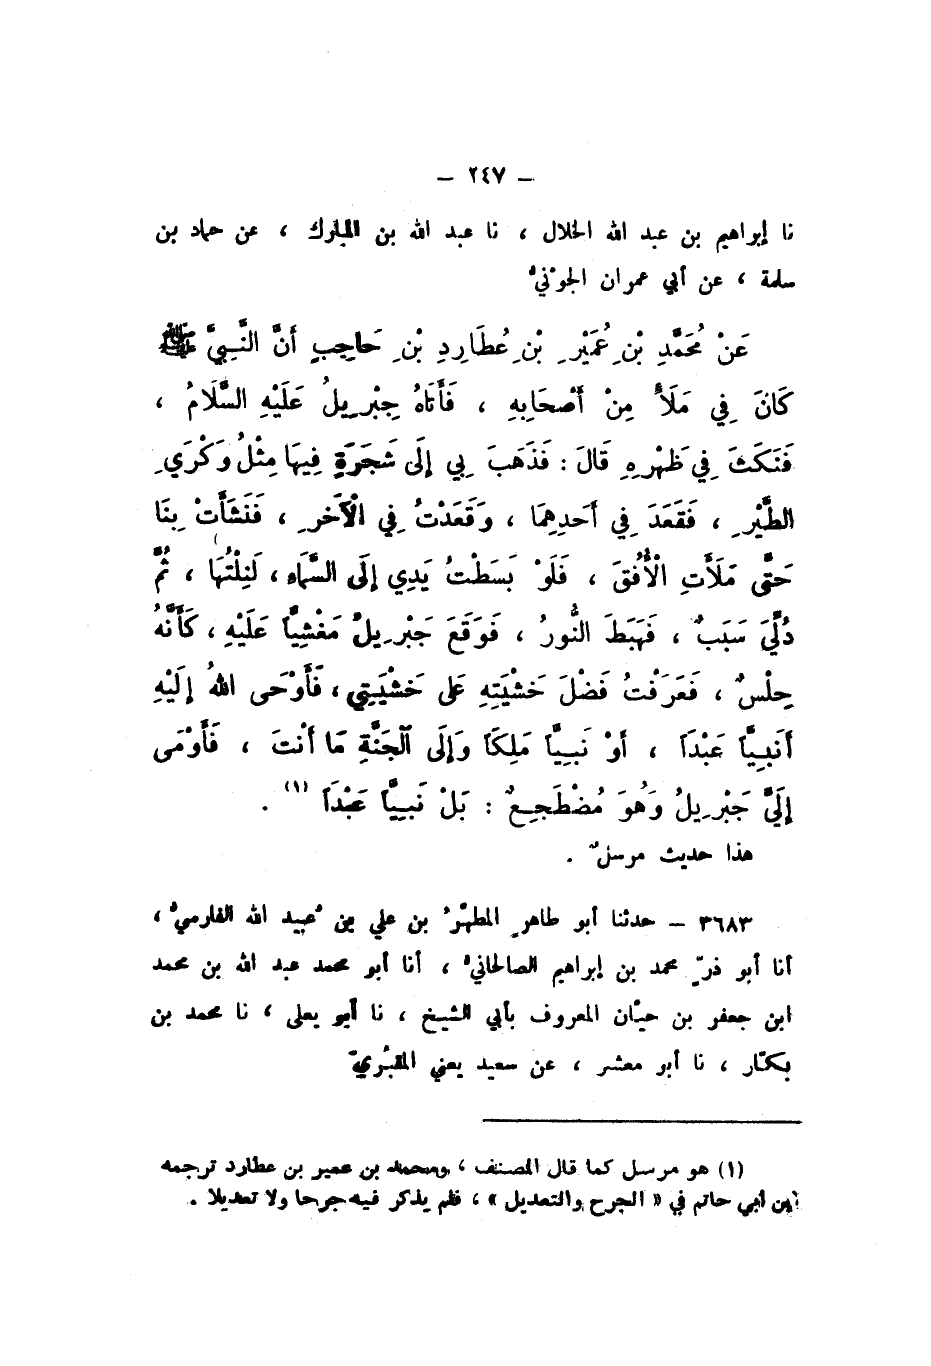 – ٢٤٧ –
نا إبراهيم بن عبد الله الخلال ، نا عبد الله بن المبارك ، عن حماد بن
سلمة ، عن أبي عمران الجونيُّ
عَنْ مُحَمَّدِ بْنِ عُمَيْرِ بْنِ عُطَارِدِ بْنِ حَاجِبٍ أَنَّ النَّبِيَّ ﷺ
كَانَ فِي مَلَأٍ مِنْ أَصْحَابِهِ ، فَأَتَاهُ جِبْرِيلُ عَلَيْهِ السَّلَامُ ،
فَنَكَثَ فِي ظَهْرِهِ قَالَ : فَذَهَبَ بِي إِلَى شَجَرَةٍ فِيهَا مِثْلُ وَكْرَيِ
الطَّيْرِ ، فَقَعَدَ فِي أَحَدِهِمَا ، وَقَعَدْتُ فِي الْآخَرِ ، فَنَشَأَتْ بِنَا
حَتَّى مَلَأَتِ الْأُفُقَ ، فَلَوْ بَسَطْتُ يَدِي إِلَى السَّمَاءِ ، لَنِلْتُهَا ، ثُمَّ
دُلِّيَ سَبَبٌ ، فَهَبَطَ النُّورُ ، فَوَقَعَ جَبْرِيلُ مَغْشِيًّا عَلَيْهِ ، كَأَنَّهُ
حِلْسٌ ، فَعَرَفْتُ فَضْلَ خَشْيَتِهِ عَلَى خَشْيَتِي ، فَأَوْحَى اللهُ إِلَيْهِ
أَنَبِيًّا عَبْدَاً ، أَوْ نَبِيًّا مَلِكَاً وَإِلَى الْجَنَّةِ مَا أَنْتَ ، فَأَوْمَى
إِلَيَّ جَبْرِيلُ وَهُوَ مُضْطَجِعٌ : بَلْ نَبِيًّا عَبْدَاً (١) .
هذا حديث مرسلٌ .
٣٦٨٣ – حدثنا أبو طاهرٍ المطهَّرُ بن علي بن عُبيد الله الفارسيُّ ،
أنا أبو ذرٍّ محمد بن إبراهيم الصالحانيُّ ، أنا أبو محمد عبد الله بن محمد
ابن جعفر بن حيَّان المعروف بأبي الشيخ ، نا أبو يعلى ، نا محمد بن
بكَّار ، نا أبو معشر ، عن سعيد يعني المقبُريّ
(١) هو مرسل كما قال المصنف ، ومحمد بن عمير بن عطارد ترجمه
ابن أبي حاتم في « الجرح والتعديل » ، فلم يذكر فيه جرحا ولا تعديلا .